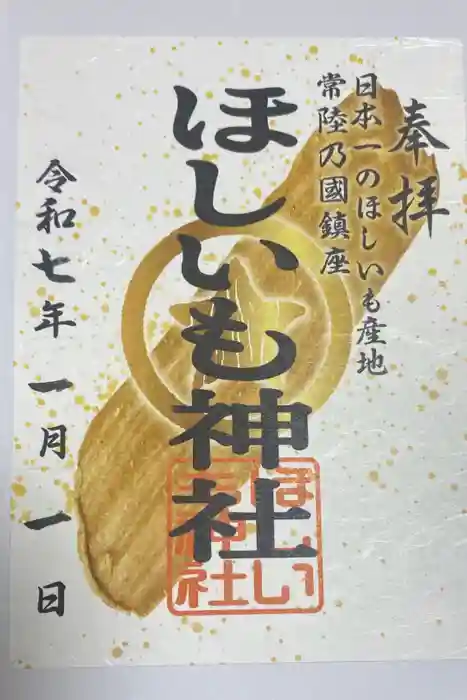 奉拝
日本一のほしいも産地
常陸乃國鎮座
ほしいも神社
ほしい
も神社
令和七年一月一日